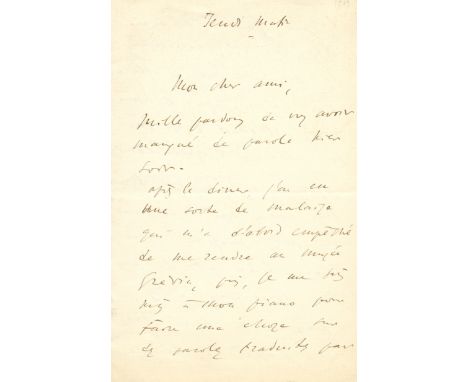 Jeudi matin
Mon cher ami,
Mille pardons de vous avoir
manqué de parole hier
soir.
après le diner j'ai eu
une sorte de malaise
qui m'a d'abord empêché
de me rendre au musée
Grévin, puis, je me suis
mis à mon piano pour
faire une chose sur
des paroles traduites par